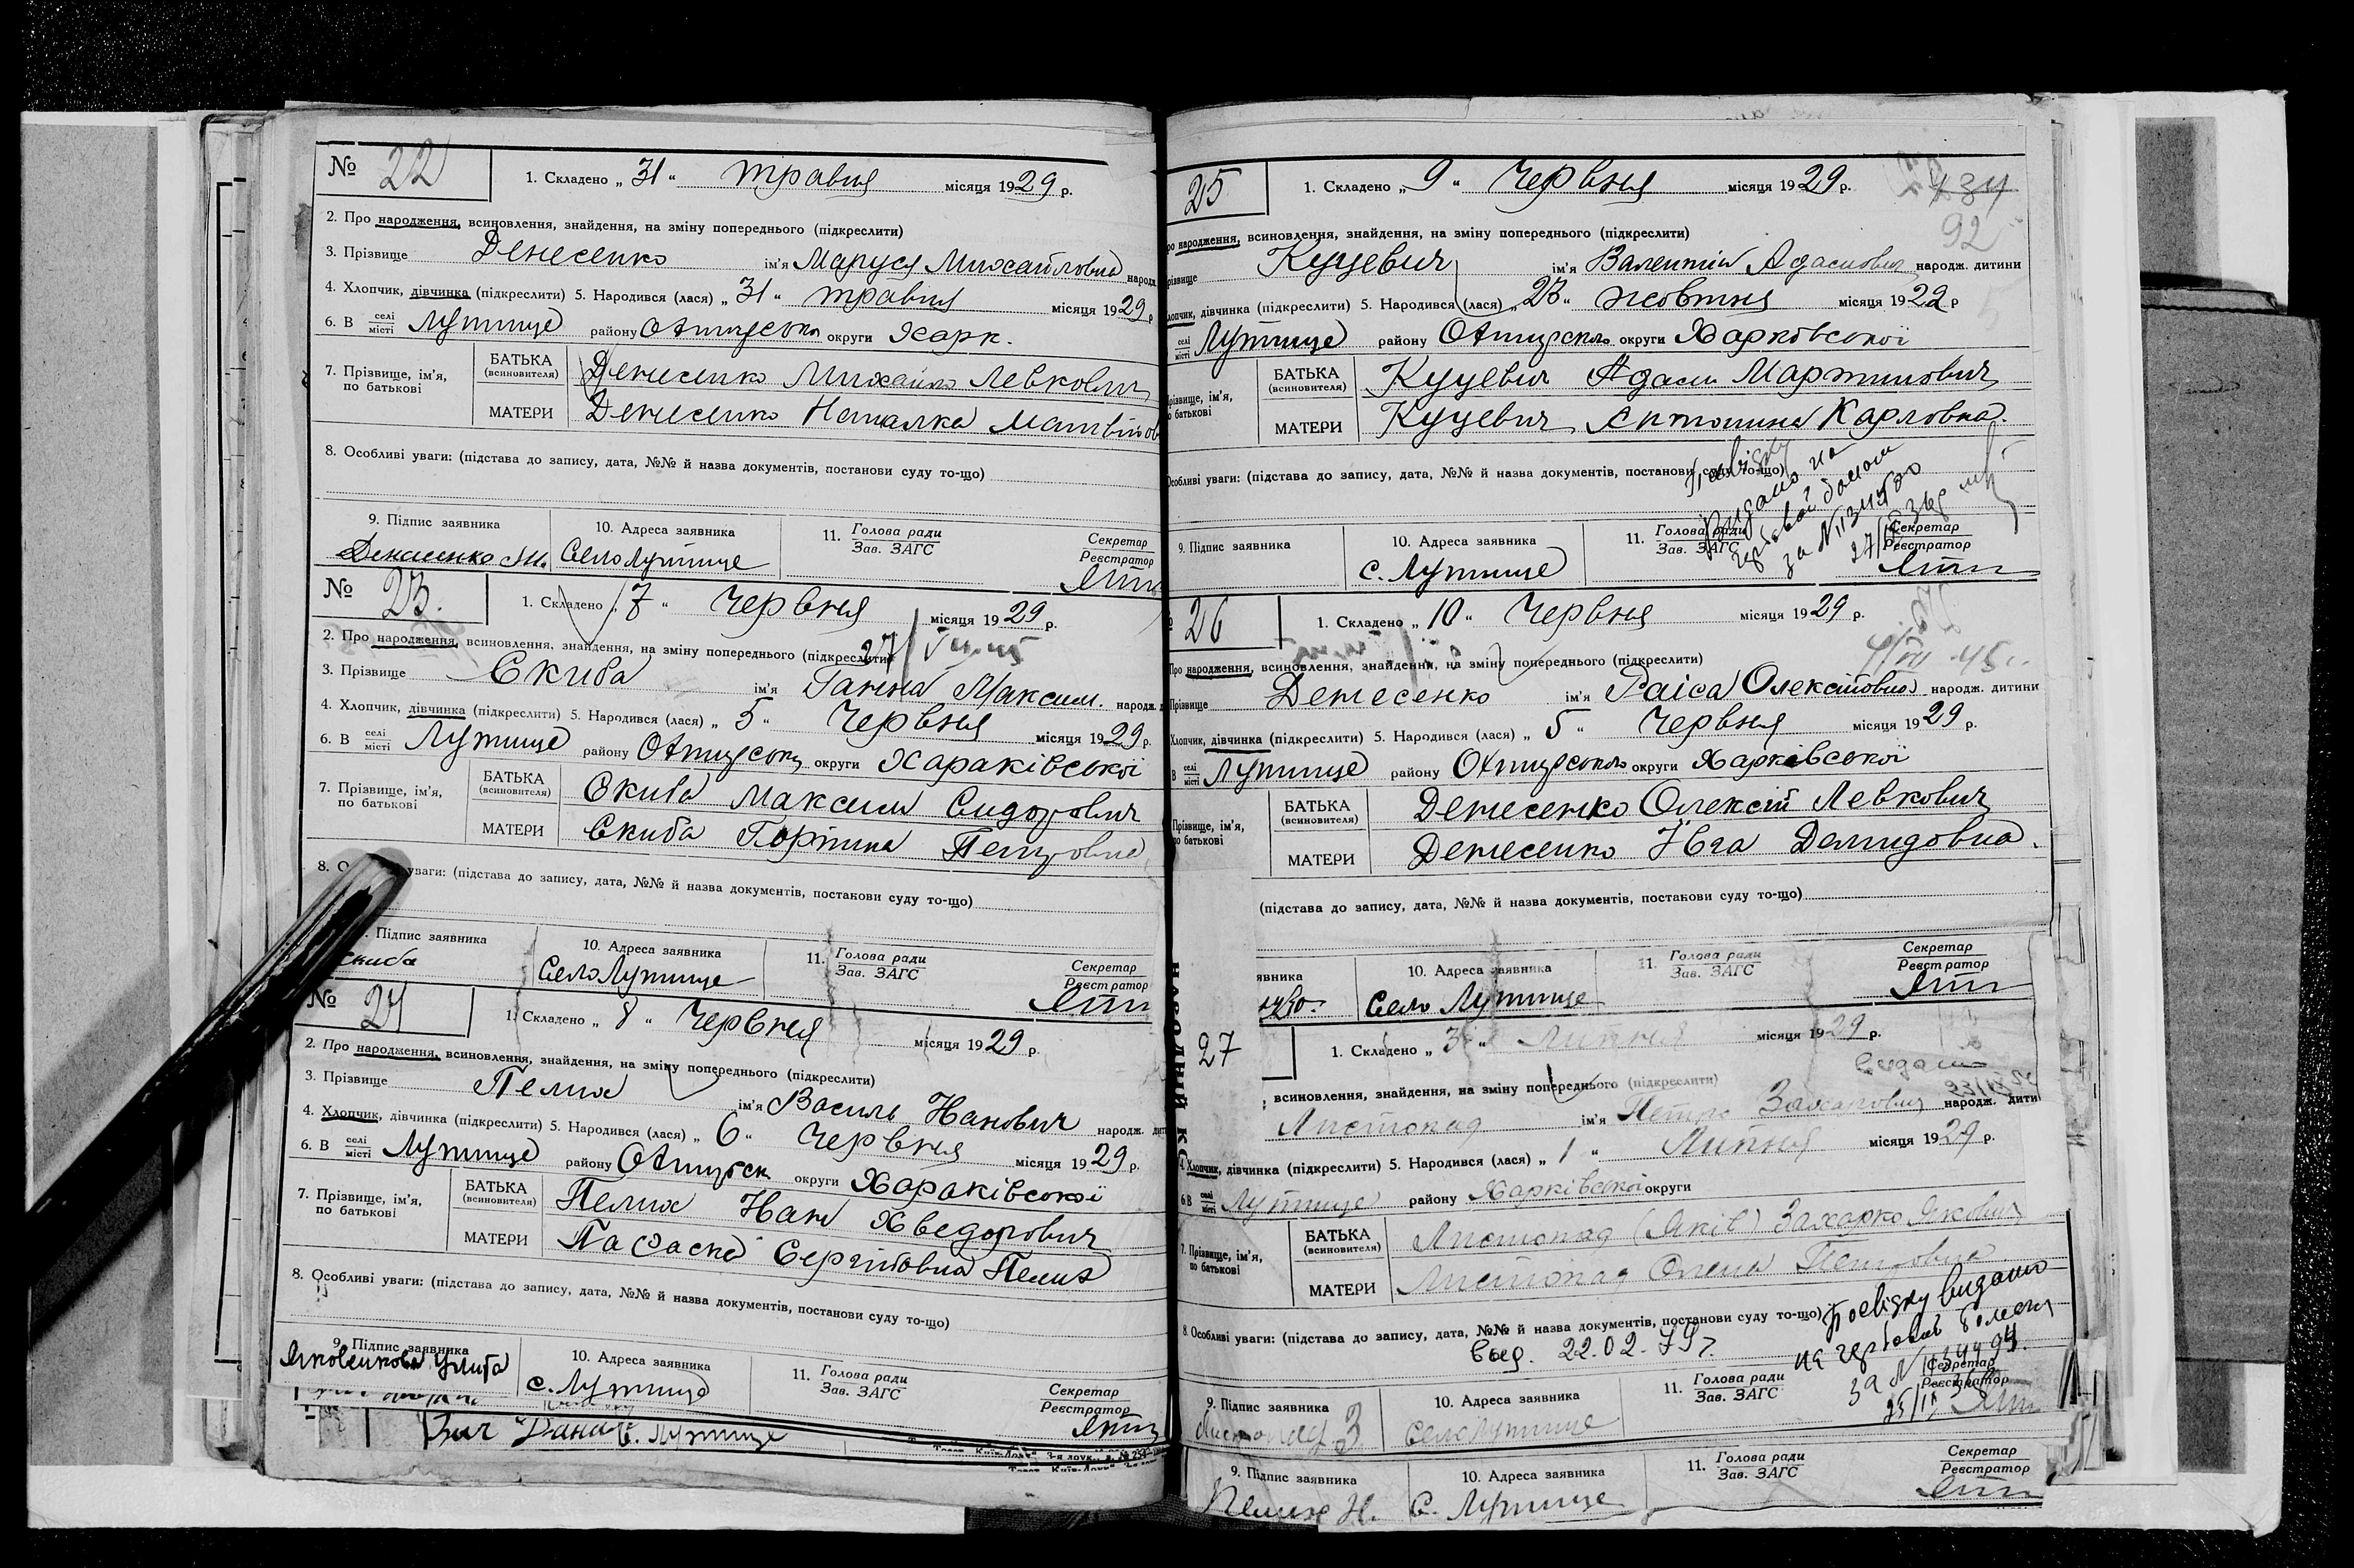 № 22
1. Складено „ 31 “ травня місяця 1929 р.
2. Про народження, всиновлення, знайдення, на зміну попереднього (підкреслити)
3. Прізвище Денесенко ім'я Маруся Михайловна народж.
4. Хлопчик, дівчинка (підкреслити) 5. Народився (лася) „ 31 “ травня місяця 1929 р
6. В селі місті Лутище району округи Харк.
7. Прізвище, ім'я, по батькові
БАТЬКА (всиновителя) Денесенко Михайло Левкович
МАТЕРИ Денесенко Наталка Матвіїов
8. Особливі уваги: (підстава до запису, дата, №№ й назва документів, постанови суду то-що)
9. Підпис заявника 10. Адреса заявника 11. Голова ради Зав. ЗАГС Секретар Реєстратор
Денисенко М. Село Лутище
№ 23.
1. Складено „ 7 “ Червня місяця 1929 р.
2. Про народження, всиновлення, знайдення, на зміну попереднього (підкреслити)
3. Прізвище Скиба ім'я Ганна Максим. народж. д
4. Хлопчик, дівчинка (підкреслити) 5. Народився (лася) „ 5 “ Червня місяця 1929 р.
6. В селі місті Лутище району округи Хараківської
7. Прізвище, ім'я, по батькові
БАТЬКА (всиновителя) Скиба Максим Сидорович
МАТЕРИ Скиба Горпина Петровна
8. О уваги: (підстава до запису, дата, №№ й назва документів, постанови суду то-що)
Підпис заявника 10. Адреса заявника 11. Голова ради Зав. ЗАГС Секретар Реєстратор
Скиба Село Лутище
№ 24
1. Складено „ 8 “ Червня місяця 1929 р.
2. Про народження, всиновлення, знайдення, на зміну попереднього (підкреслити)
3. Прізвище Пелих ім'я Василь Иванович народж. дит
4. Хлопчик, дівчинка (підкреслити) 5. Народився (лася) „ 6 “ Червня місяця 1929 р.
6. В селі місті Лутище району округи Хараківської
7. Прізвище, ім'я, по батькові
БАТЬКА (всиновителя) Пелих Иван Хведорович
МАТЕРИ Параска Сергіївна Пелих
8. Особливі уваги: (підстава до запису, дата, №№ й назва документів, постанови суду то-що)
9. Підпис заявника 10. Адреса заявника 11. Голова ради Зав. ЗАГС Секретар Реєстратор
с. Лутище
с. Лутище
25
1. Складено „ 9 “ Червня місяця 1929 р.
92
народження, всиновлення, знайдення, на зміну попереднього (підкреслити)
різвище Куцевич ім'я Валентин Адамович народж. дитини
лопчик, дівчинка (підкреслити) 5. Народився (лася) „ 23 “ жовтня місяця 1922 р
селі місті Лутище району округи Харковської
різвище, ім'я, о батькові
БАТЬКА (всиновителя) Куцевич Адам Мартинович
МАТЕРИ Куцевич Антонина Карловна.
Особливі уваги: (підстава до запису, дата, №№ й назва документів, постанови суду то-що)
Видано на
9. Підпис заявника 10. Адреса заявника 11. Голова ради Зав. ЗАГС Секретар Реєстратор
с. Лутище
26
1. Складено „ 10 “ Червня місяця 1929 р.
Про народження, всиновлення, знайдення, на зміну попереднього (підкреслити)
Прізвище Денесенко ім'я Раіса Олексіївна народж. дитини
Хлопчик, дівчинка (підкреслити) 5. Народився (лася) „ 5 “ Червня місяця 1929 р.
В селі місті Лутище району округи Харківської
Прізвище, ім'я, по батькові
БАТЬКА (всиновителя) Денесенко Олексій Левкович
МАТЕРИ Денесенко Ивга Демидовна.
(підстава до запису, дата, №№ й назва документів, постанови суду то-що)
явника 10. Адреса заявника 11. Голова ради Зав. ЗАГС Секретар Реєстратор
Село Лутище
27
1. Складено „ 3 “ Липня місяця 1929 р.
видано
всиновлення, знайдення, на зміну попереднього (підкреслити)
Листопад ім'я Петро Захарович народж. дити
4. Хлопчик, дівчинка (підкреслити) 5. Народився (лася) „ 1 “ Липня місяця 1929 р.
6. В селі місті Лутище району Харківської округи
7. Прізвище, ім'я, по батькові
БАТЬКА (всиновителя) Листопад (Яків) Захарко Якович
МАТЕРИ Листопад Олена Петровна
8. Особливі уваги: (підстава до запису, дата, №№ й назва документів, постанови суду то-що) Посвідку видано
22.02.79 г.
9. Підпис заявника 10. Адреса заявника 11. Голова ради Зав. ЗАГС Секретар Реєстратор
Листопад З Село Лутище
9. Підпис заявника 10. Адреса заявника 11. Голова ради Зав. ЗАГС Секретар Реєстратор
Пелих И. С. Лутище